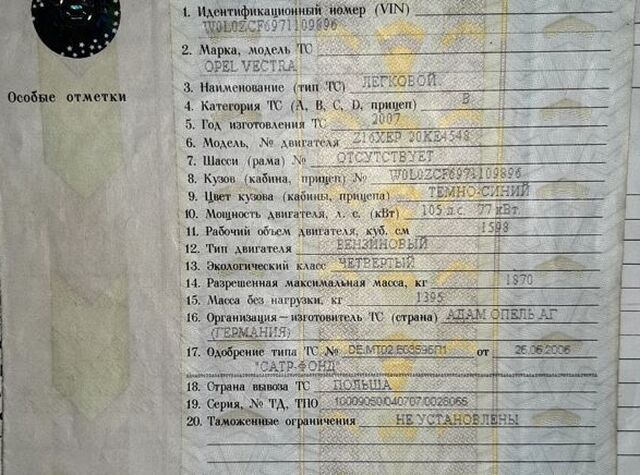 1. Идентификационный номер (VIN)
W0L0ZCF6971109896
2. Марка, модель ТС
OPEL VECTRA
Особые отметки
3. Наименование (тип ТС) ЛЕГКОВОЙ
4. Категория ТС (А, В, С, D, прицеп) В
5. Год изготовления ТС 2007
6. Модель, № двигателя Z16XEP 20KE4548
7. Шасси (рама) № ОТСУТСТВУЕТ
8. Кузов (кабина, прицеп) № W0L0ZCF6971109896
9. Цвет кузова (кабины, прицепа) ТЕМНО-СИНИЙ
10. Мощность двигателя, л. с. (кВт) 105 л.с. 77 кВт
11. Рабочий объем двигателя, куб. см 1598
12. Тип двигателя БЕНЗИНОВЫЙ
13. Экологический класс ЧЕТВЕРТЫЙ
14. Разрешенная максимальная масса, кг 1870
15. Масса без нагрузки, кг 1395
16. Организация-изготовитель ТС (страна) АДАМ ОПЕЛЬ АГ
(ГЕРМАНИЯ)
17. Одобрение типа ТС № от 26.06.2006
"САТР-ФОНД"
18. Страна вывоза ТС ПОЛЬША
19. Серия, № ТД, ТПО 10009050/040707/0028065
20. Таможенные ограничения НЕ УСТАНОВЛЕНЫ